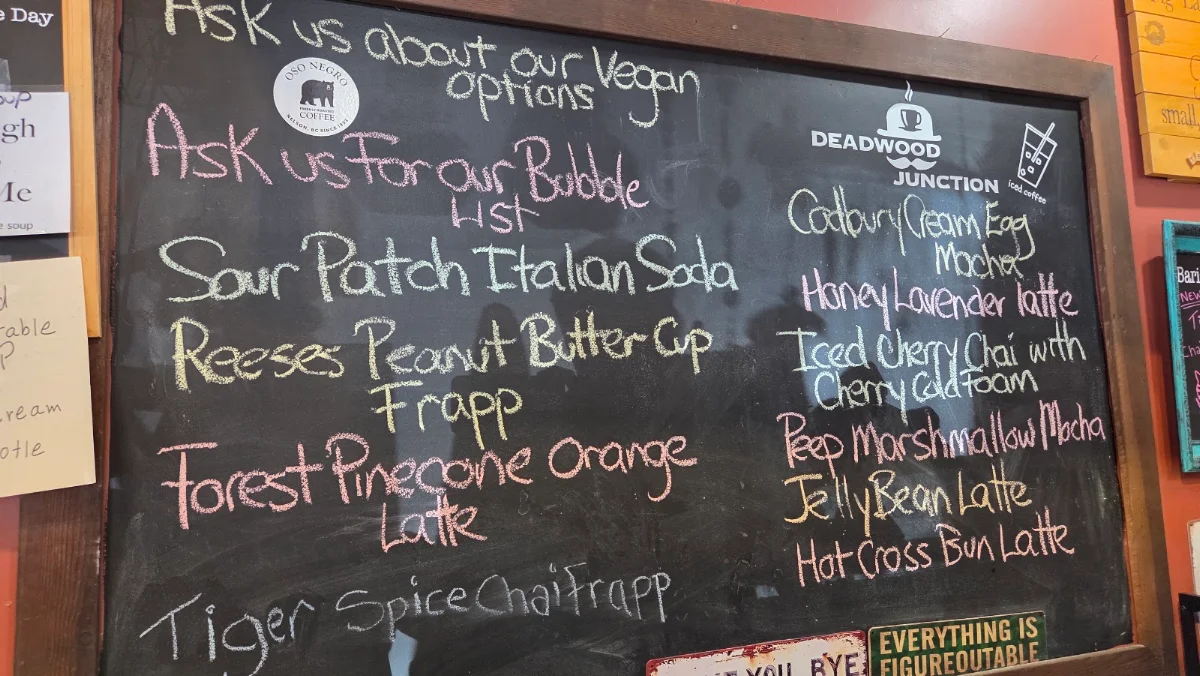 e Day
Ask us about our Vegan
options
OSO NEGRO
COFFEE
NELSON · BC SINCE 1993
Ask us For our Bubble
List
Sour Patch Italian Soda
Reeses Peanut Butter Cup
Frapp
Forest Pinecone Orange
Latte
Tiger Spice Chai Frapp
DEADWOOD
JUNCTION
iced coffee
Cadbury Cream Egg
Mocha
Honey Lavender latte
Iced Cherry Chai with
Cherry Cold Foam
Peep Marshmallow Mocha
Jelly Bean Latte
Hot Cross Bun Latte
YOU, BYE
EVERYTHING IS
FIGUREOUTABLE
oup
gh
Me
e soup
d
rable
P
ream
otle
small
Bari
NEW